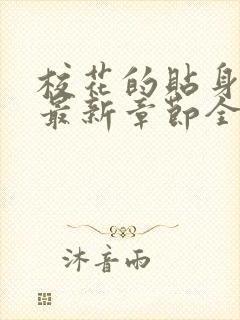 校花的贴身
最新章节全
沐音雨